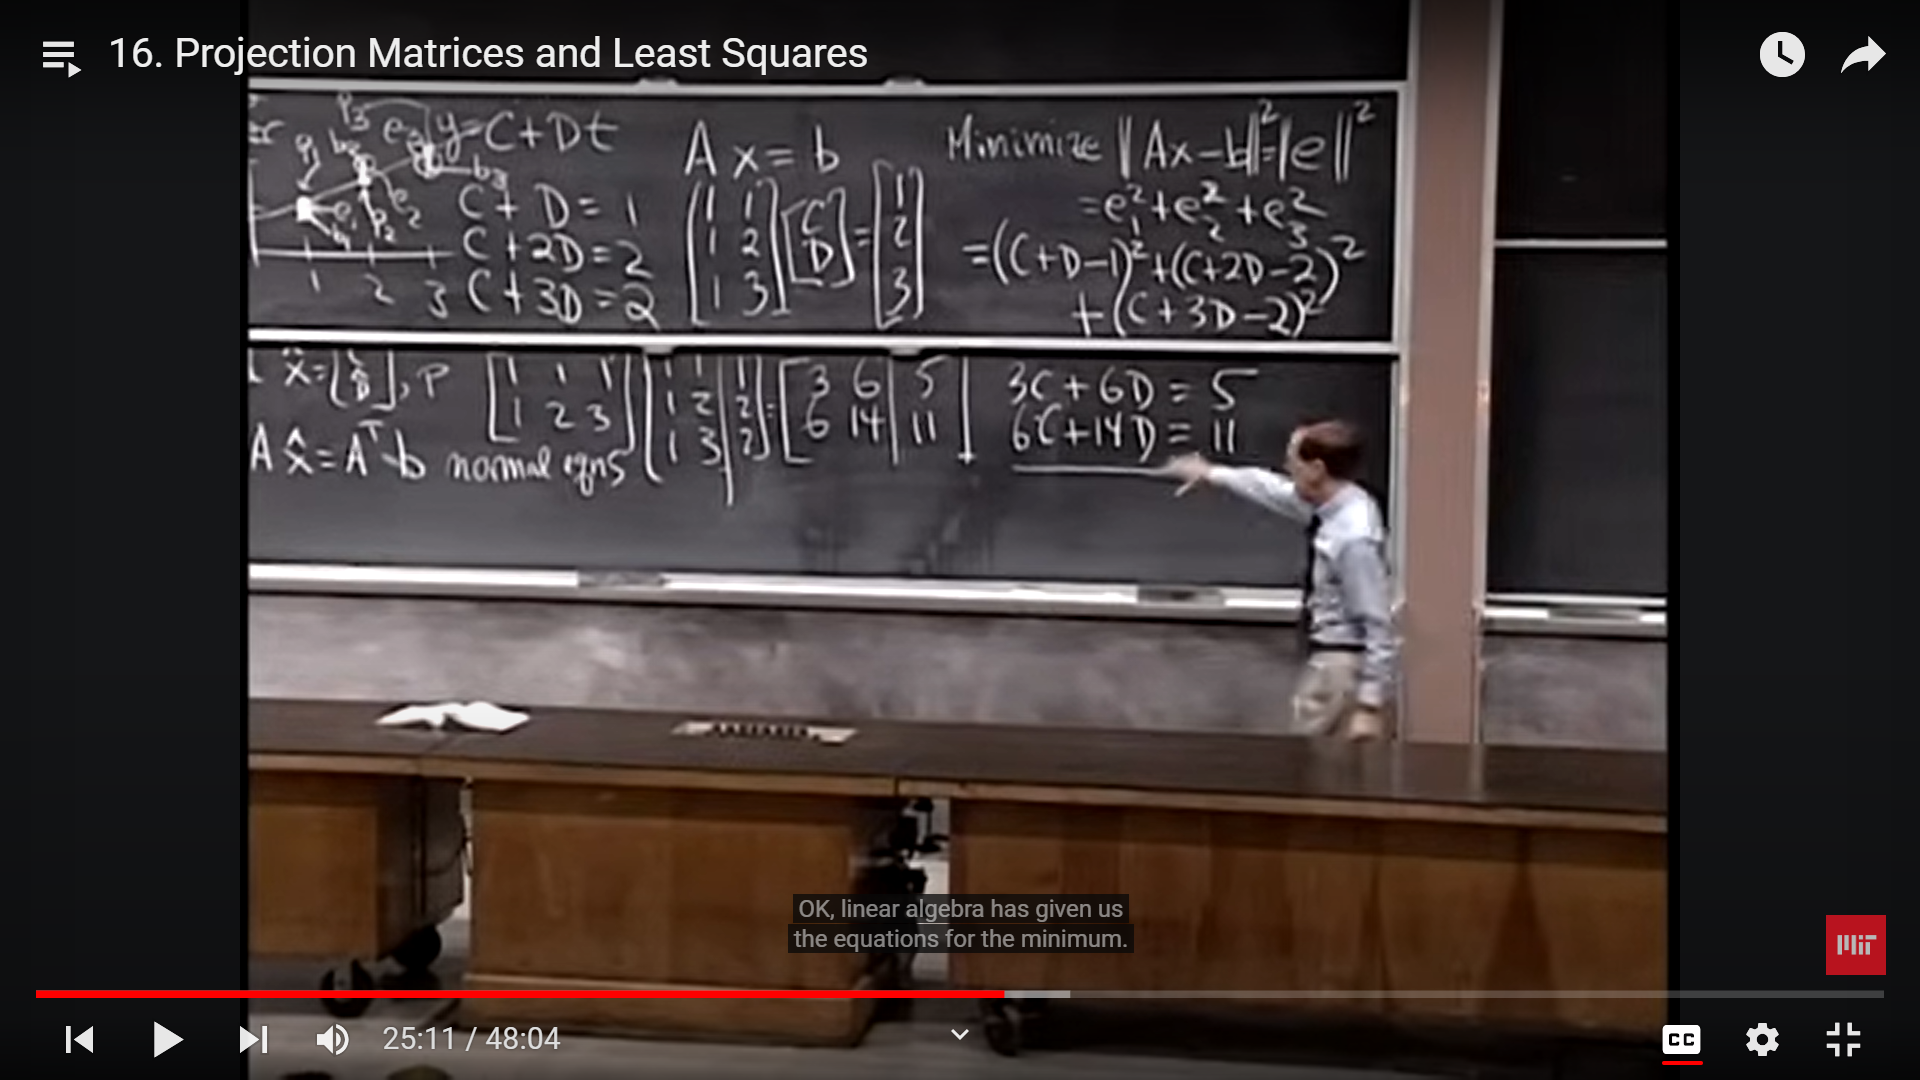 16. Projection Matrices and Least Squares
y=C+Dt
p3
e3
b3
p1
b2
e1
b1
p2
e2
1 2 3
C+ D= 1
C+2D=2
C+3D=2
A x= b
[1 1
1 2
1 3] [C
D] = [1
2
3]
Minimize ||Ax-b||²=||e||²
=e₁²+e₂²+e₃²
=(C+D-1)²+(C+2D-2)²
+(C+3D-2)²
x̂=[Ĉ
D̂], P
Ax̂=Aᵀb normal eqns
[1 1 1
1 2 3] [1 1 | 1
1 2 | 2
1 3 | 2] = [3 6 | 5
6 14 | 11]
3C+6D = 5
6C+14D = 11
OK, linear algebra has given us
the equations for the minimum.
MIT
25:11 / 48:04
CC